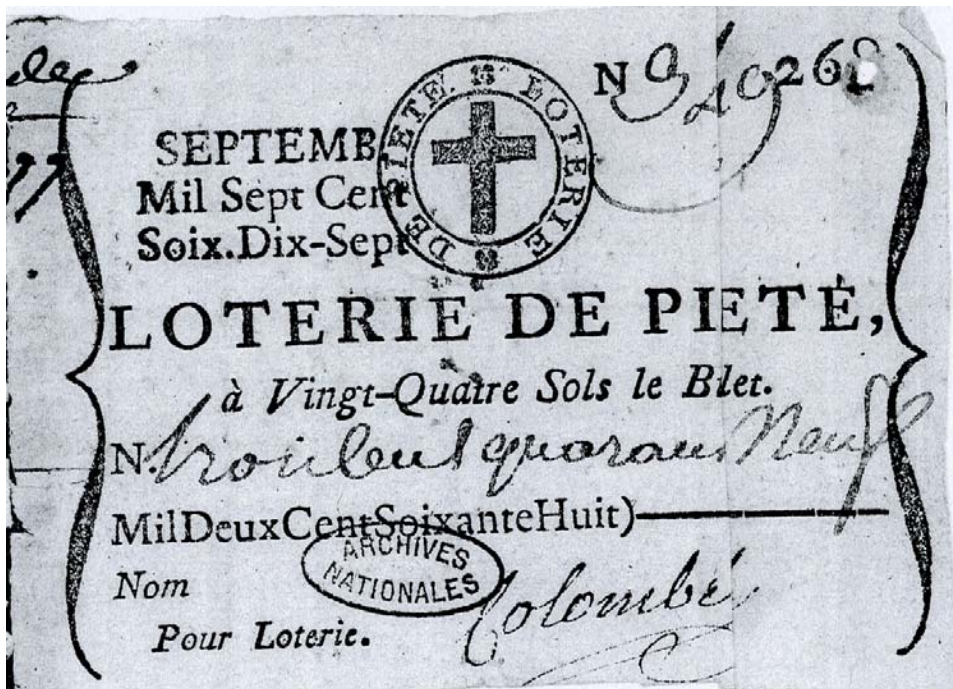 N 349268
SEPTEMB
Mil Sept Cent
Soix.Dix-Sept
LOTERIE DE PIETE
LOTERIE DE PIETÉ,
à Vingt-Quatre Sols le Blet.
N. trois Cent quarante Neuf
MilDeuxCentSoixanteHuit)
ARCHIVES
NATIONALES
Nom Colombé
Pour Loterie.